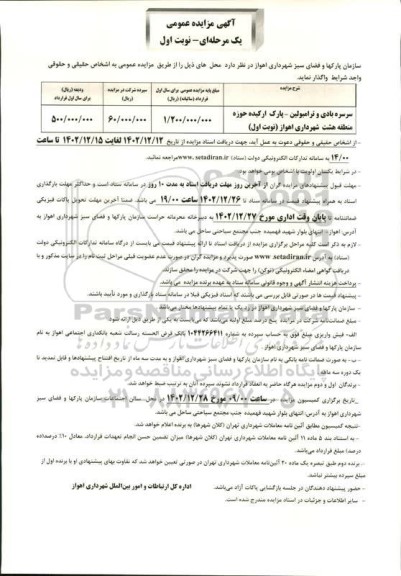 آگهی مزایده عمومی
یک مرحله‌ای – نوبت اول
سازمان پارکها و فضای سبز شهرداری اهواز در نظر دارد محل های ذیل را از طریق مزایده عمومی به اشخاص حقیقی و حقوقی
واجد شرایط واگذار نماید.
شرح مزایده
مبلغ پایه مزایده عمومی برای سال اول قرارداد (سالیانه) (ریال)
سپرده شرکت در مزایده (ریال)
ودیعه (ریال) برای سال اول قرارداد
سرسره بادی و ترامپولین – پارک ارکیده حوزه منطقه هشت شهرداری اهواز (نوبت اول)
۱/۲۰۰/۰۰۰/۰۰۰
۶۰/۰۰۰/۰۰۰
۵۰۰/۰۰۰/۰۰۰
- از اشخاص حقیقی و حقوقی دعوت به عمل آید، جهت دریافت اسناد مزایده از تاریخ ۱۴۰۲/۱۲/۱۳ لغایت ۱۴۰۲/۱۲/۱۵ تا ساعت
۱۴/۰۰ به سامانه تدارکات الکترونیکی دولت (ستاد) www.setadiran.ir مراجعه نمائید.
- در شرایط یکسان اولویت با اشخاص بومی خواهد بود.
- مهلت قبول پیشنهادهای مزایده گران از آخرین روز مهلت دریافت اسناد به مدت ۱۰ روز در سامانه ستاد است و حداکثر مهلت بارگذاری
اسناد به همراه پیشنهاد قیمت در سامانه ستاد تا ۱۴۰۲/۱۲/۲۶ ساعت ۱۹/۰۰ می باشد. ضمنا آخرین مهلت تحویل پاکات فیزیکی
ضمانتنامه تا پایان وقت اداری مورخ ۱۴۰۲/۱۲/۲۷ به دبیرخانه محرمانه حراست سازمان پارکها و فضای سبز شهرداری اهواز به
آدرس: اهواز – انتهای بلوار شهید فهمیده جنب مجتمع سیاحتی ساحل می باشد.
- لازم به ذکر است کلیه مراحل برگزاری مزایده از دریافت اسناد تا ارائه پیشنهاد قیمت می بایست از درگاه سامانه تدارکات الکترونیکی دولت
(ستاد) به آدرس www.setadiran.ir صورت پذیرد و مزایده گران در صورت عدم عضویت قبلی مراحل ثبت نام را در سایت مذکور و با
دریافت گواهی امضاء الکترونیکی (توکن) را جهت شرکت در مزایده را محقق سازند.
- پرداخت هزینه انتشار آگهی و وجوه قانونی سامانه ستاد به عهده برنده مزایده می باشد.
- پیشنهاد قیمت ها در صورتی قابل بررسی می باشند که اسناد فیزیکی قبلا در سامانه ستاد بارگذاری و مورد تأیید باشند.
- سازمان پارکها و فضای سبز شهرداری اهواز در رد یک یا تمام پیشنهادها مختار می باشد.
- مبلغ ضمانتنامه شرکت در مزایده پنج درصد مبلغ اولیه می‌باشد که می‌بایست به یکی از طریق ذیل ارائه شود:
الف- فیش واریزی مبلغ فوق به حساب سپرده به شماره ۱۰۰۳۳۲۶۶۴۱۱ بانک قرض الحسنه رسالت شعبه باتکداری اجتماعی اهواز به نام
سازمان پارکها و فضای سبز شهرداری اهواز
- ب- به صورت ضمانت نامه بانکی به نام سازمان پارکها و فضای سبز شهرداری اهواز و به مدت سه ماه از تاریخ افتتاح پیشنهادها و قابل تمدید تا
یک دوره سه ماهه
- برندگان اول و دوم مزایده هرگاه حاضر به انعقاد قرارداد نشوند سپرده آنان به ترتیب ضبط خواهد شد.
- تاریخ برگزاری کمیسیون مزایده در ساعت ۰۹/۰۰ مورخ ۱۴۰۲/۱۲/۲۸ در محل سالن اجتماعات سازمان پارکها و فضای سبز
شهرداری اهواز به آدرس: انتهای بلوار شهید فهمیده جنب مجتمع سیاحتی ساحل می باشد.
- نتیجه کمیسیون مطابق آئین نامه معاملات شهرداری تهران (کلان شهرها) به برنده اعلام خواهد شد.
- به استناد بند ۵ ماده ۱۱ آئین نامه معاملات شهرداری تهران (کلان شهرها) میزان تضمین حسن انجام تعهدات قرارداد، معادل ۱۰٪ (ده‌
درصد) مبلغ قرارداد می‌باشد.
- برنده دوم طبق تبصره یک ماده ۲۰ آئین‌نامه معاملات شهرداری تهران در صورتی تعیین خواهد شد که تفاوت بهای پیشنهادی او با برنده اول از
مبلغ سپرده بیشتر نباشد.
- حضور پیشنهاد دهندگان در جلسه بازگشایی پاکات آزاد می‌باشد.
- سایر اطلاعات و جزئیات در اسناد مزایده مندرج شده است.
اداره کل ارتباطات و امور بین‌الملل شهرداری اهواز